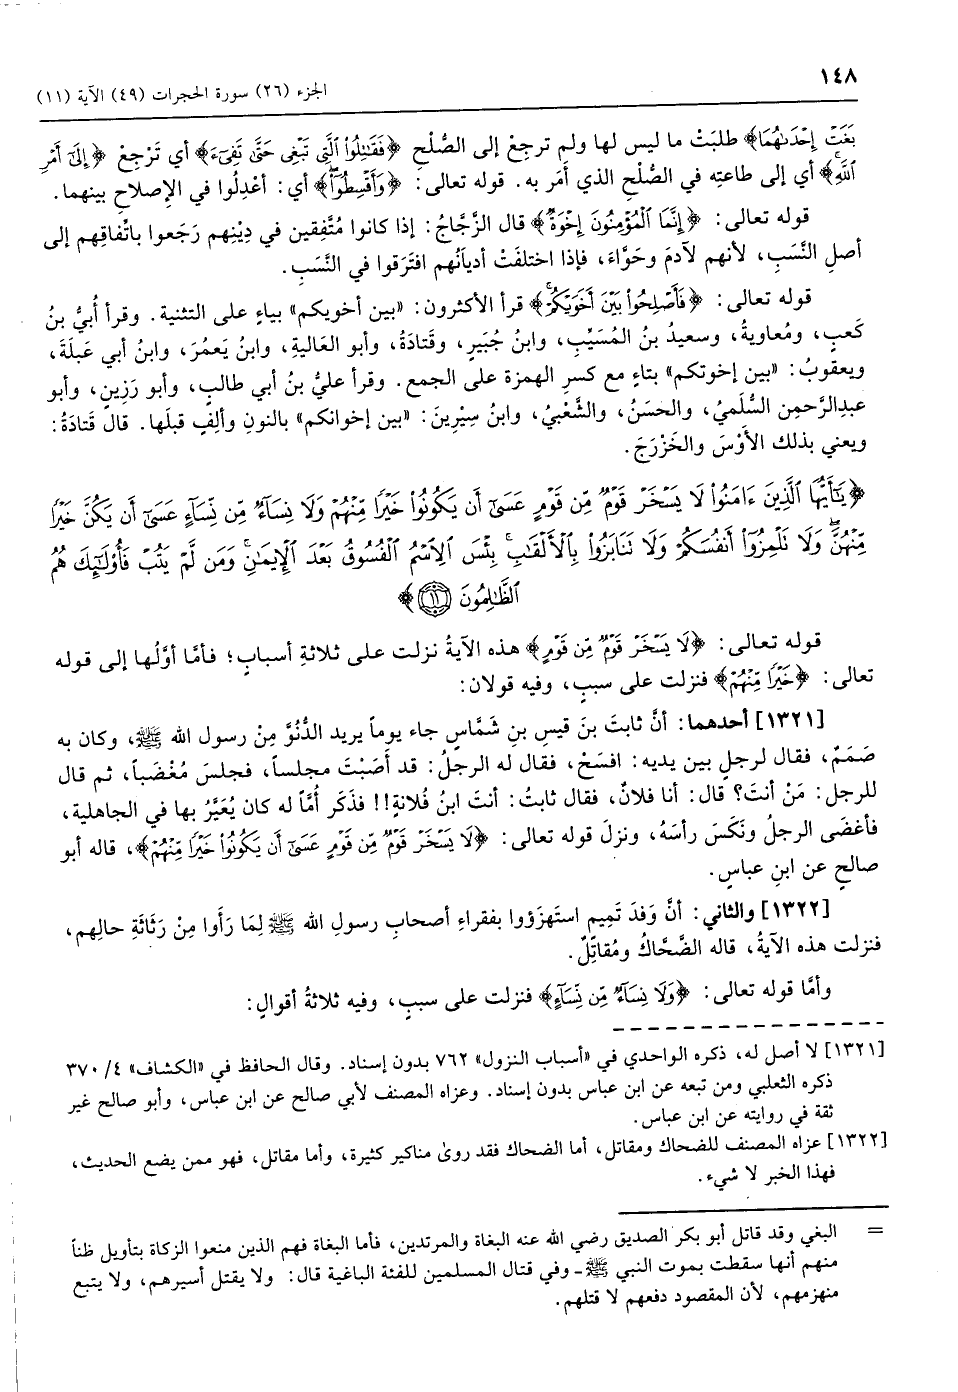 ١٤٨
الجزء (٢٦) سورة الحجرات (٤٩) الآية (١١)
بَغَتْ إِحْدَىٰهُمَا﴾ طلبَتْ ما ليس لها ولم ترجِعْ إلى الصُّلْحِ ﴿فَقَٰتِلُوا۟ ٱلَّتِى تَبْغِى حَتَّىٰ تَفِىٓءَ﴾ أي تَرْجِعَ ﴿إِلَىٰٓ أَمْرِ
ٱللَّهِۚ﴾ أي إلى طاعتِه في الصُّلْح الذي أَمَر به. قوله تعالى: ﴿وَأَقْسِطُوٓا۟ۖ﴾ أي: أعْدِلُوا في الإصلاح بينهما.
قوله تعالى: ﴿إِنَّمَا ٱلْمُؤْمِنُونَ إِخْوَةٌ﴾ قال الزَّجَّاجُ: إذا كانوا مُتَّفِقين في دِيْنِهم رَجَعوا باتِّفاقِهم إلى
أصلِ النَّسَبِ، لأنهم لآدمَ وحَوَّاءَ، فإذا اختلفَتْ أديانُهم افترَقوا في النَّسَبِ.
قوله تعالى: ﴿فَأَصْلِحُوا۟ بَيْنَ أَخَوَيْكُمْۚ﴾ قرأ الأكثرون: «بين أخويكم» بياءٍ على التثنية. وقرأ أُبيُّ بنُ
كَعبٍ، ومُعاويةُ، وسعيدُ بنُ المُسَيِّبِ، وابنُ جُبَيرٍ، وقَتادَةُ، وأبو العَاليةِ، وابنُ يَعمُرَ، وابنُ أبي عَبلَةَ،
ويعقوبُ: «بين إخوتكم» بتاءٍ مع كسرِ الهمزة على الجمع. وقرأ عليُّ بنُ أبي طالبٍ، وأبو رَزِينٍ، وأبو
عبدِالرَّحمنِ السُّلَميُّ، والحَسَنُ، والشَّعْبيُّ، وابنُ سِيْرِينَ: «بين إخوانكم» بالنونِ وألِفٍ قبلَها. قال قَتادَةُ:
ويعني بذلك الأوْسَ والخَزْرَجَ.
﴿يَٰٓأَيُّهَا ٱلَّذِينَ ءَامَنُوا۟ لَا يَسْخَرْ قَوْمٌ مِّن قَوْمٍ عَسَىٰٓ أَن يَكُونُوا۟ خَيْرًا مِّنْهُمْ وَلَا نِسَآءٌ مِّن نِّسَآءٍ عَسَىٰٓ أَن يَكُنَّ خَيْرًا
مِّنْهُنَّۖ وَلَا تَلْمِزُوٓا۟ أَنفُسَكُمْ وَلَا تَنَابَزُوا۟ بِٱلْأَلْقَٰبِۖ بِئْسَ ٱلِٱسْمُ ٱلْفُسُوقُ بَعْدَ ٱلْإِيمَٰنِۚ وَمَن لَّمْ يَتُبْ فَأُو۟لَٰٓئِكَ هُمُ
ٱلظَّٰلِمُونَ ﴿١١﴾﴾
قوله تعالى: ﴿لَا يَسْخَرْ قَوْمٌ مِّن قَوْمٍ﴾ هذه الآيةُ نزلت على ثلاثةِ أسبابٍ؛ فأمَّا أوَّلُها إلى قوله
تعالى: ﴿خَيْرًا مِّنْهُمْ﴾ فنزلت على سببٍ، وفيه قولان:
[١٣٢١] أحدهما: أنَّ ثابتَ بنَ قيسِ بنِ شَمَّاسٍ جاء يوماً يريد الدُّنُوَّ مِنْ رسول الله ﷺ، وكان به
صَمَمٌ، فقال لرجلٍ بين يديه: افسَحْ، فقال له الرجلُ: قد أصَبْتَ مجلساً، فجلسَ مُغْضَباً، ثم قال
للرجل: مَنْ أنتَ؟ قال: أنا فلانٌ، فقال ثابتُ: أنتَ ابنُ فُلانةٍ!! فذكَر أُمَّا له كان يُعَيَّرُ بها في الجاهلية،
فأغضَى الرجلُ ونَكَسَ رأسَهُ، ونزلَ قوله تعالى: ﴿لَا يَسْخَرْ قَوْمٌ مِّن قَوْمٍ عَسَىٰٓ أَن يَكُونُوا۟ خَيْرًا مِّنْهُمْ﴾، قاله أبو
صالحٍ عن ابنِ عباسٍ.
[١٣٢٢] والثاني: أنَّ وَفدَ تَمِيمٍ استَهزَؤوا بفقراءِ أصحابِ رسولِ الله ﷺ لِمَا رَأَوا مِنْ رَثَاثَةِ حالِهم،
فنزلت هذه الآيةُ، قاله الضَّحَّاكُ ومُقاتِلٌ.
وأمَّا قوله تعالى: ﴿وَلَا نِسَآءٌ مِّن نِّسَآءٍ﴾ فنزلت على سببٍ، وفيه ثلاثةُ أقوالٍ:
[١٣٢١] لا أصل له، ذكره الواحدي في «أسباب النزول» ٧٦٢ بدون إسناد. وقال الحافظ في «الكشاف» ٤/ ٣٧٠
ذكره الثعلبي ومن تبعه عن ابن عباس بدون إسناد. وعزاه المصنف لأبي صالح عن ابن عباس، وأبو صالح غير
ثقة في روايته عن ابن عباس.
[١٣٢٢] عزاه المصنف للضحاك ومقاتل، أما الضحاك فقد روىٰ مناكير كثيرة، وأما مقاتل، فهو ممن يضع الحديث،
فهذا الخبر لا شيء.
= البغي وقد قاتل أبو بكر الصديق رضي الله عنه البغاة والمرتدين، فأما البغاة فهم الذين منعوا الزكاة بتأويل ظناً
منهم أنها سقطت بموت النبي ﷺ ـ وفي قتال المسلمين للفئة الباغية قال: ولا يقتل أسيرهم، ولا يتبع
منهزمهم، لأن المقصود دفعهم لا قتلهم.